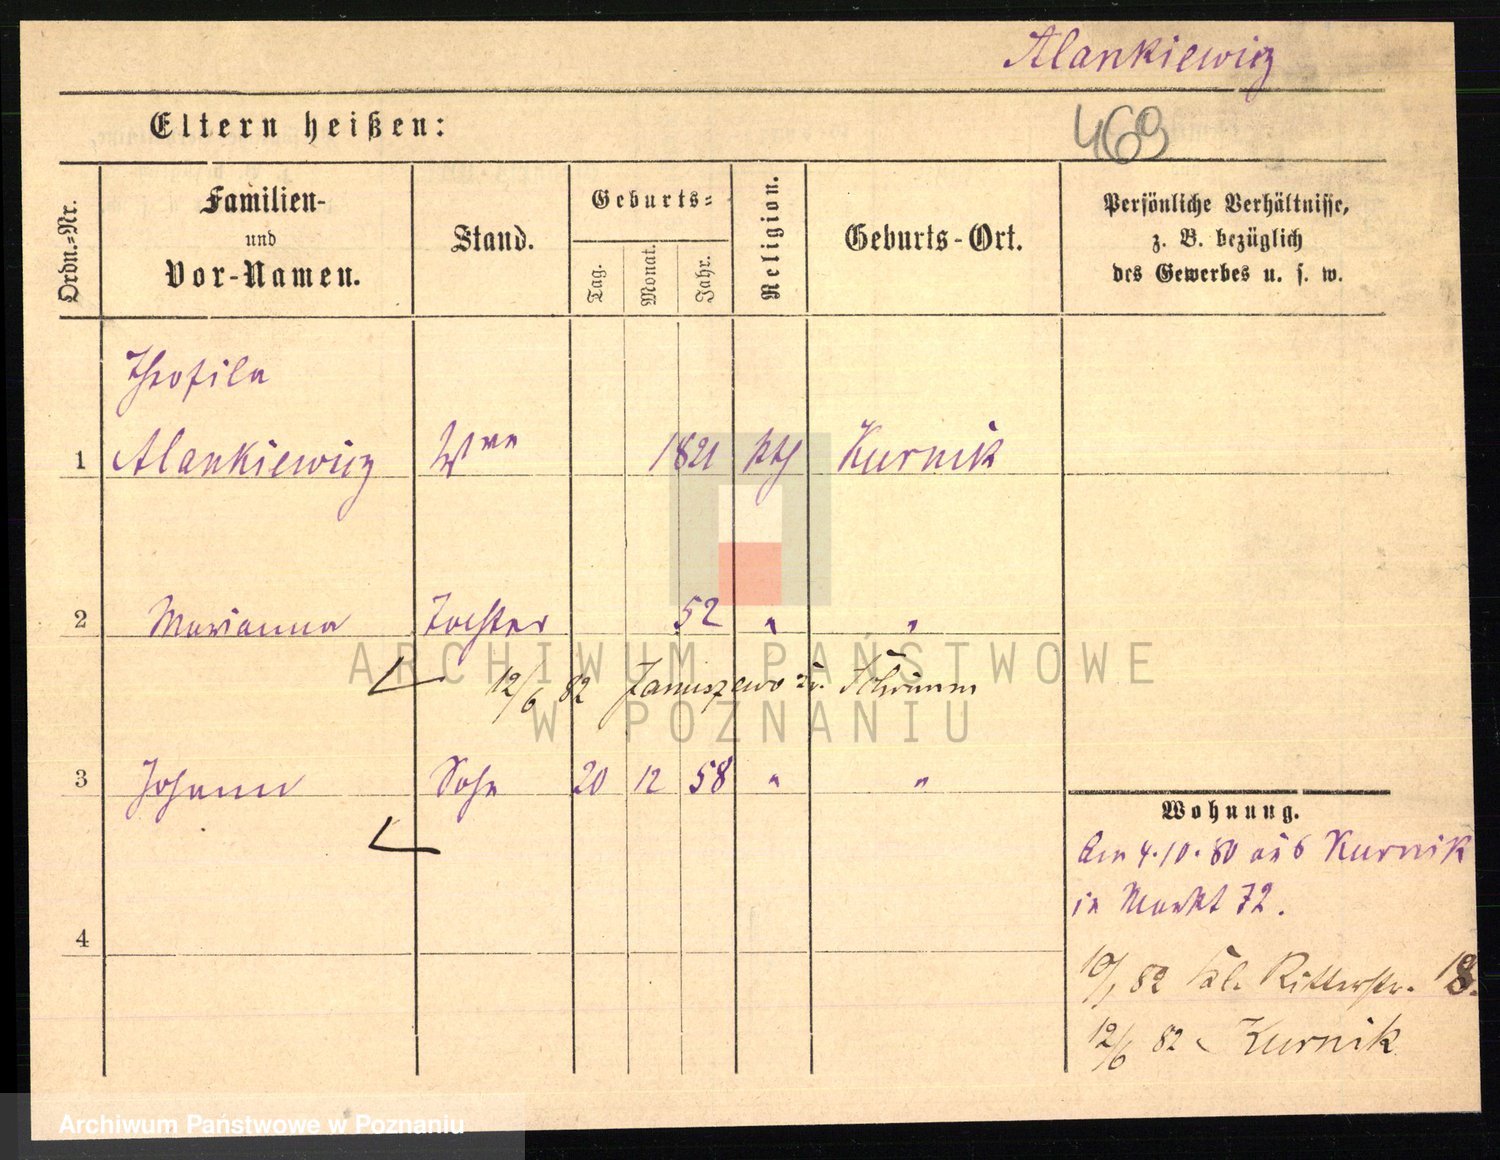 Alankiewicz
469
Eltern heißen:
Ordn.=Nr.
Familien-
und
Vor-Namen.
Stand.
Geburts=
Tag.
Monat.
Jahr.
Religion.
Geburts-Ort.
Persönliche Verhältnisse,
z. B. bezüglich
des Gewerbes u. s. w.
Theofila
1 Alankiewicz Wwe 1821 kth Kurnik
2 Marianna Tochter 52 " "
12/6 82 Januszewo Schrimm
3 Johann Sohn 20 12 58 " "
4
Wohnung.
Am 4.10.80 aus Kurnik
in Markt 72.
10/1 82 Ritterstr. 18.
12/6 82 Kurnik
ARCHIWUM PAŃSTWOWE
W POZNANIU
Archiwum Państwowe w Poznaniu